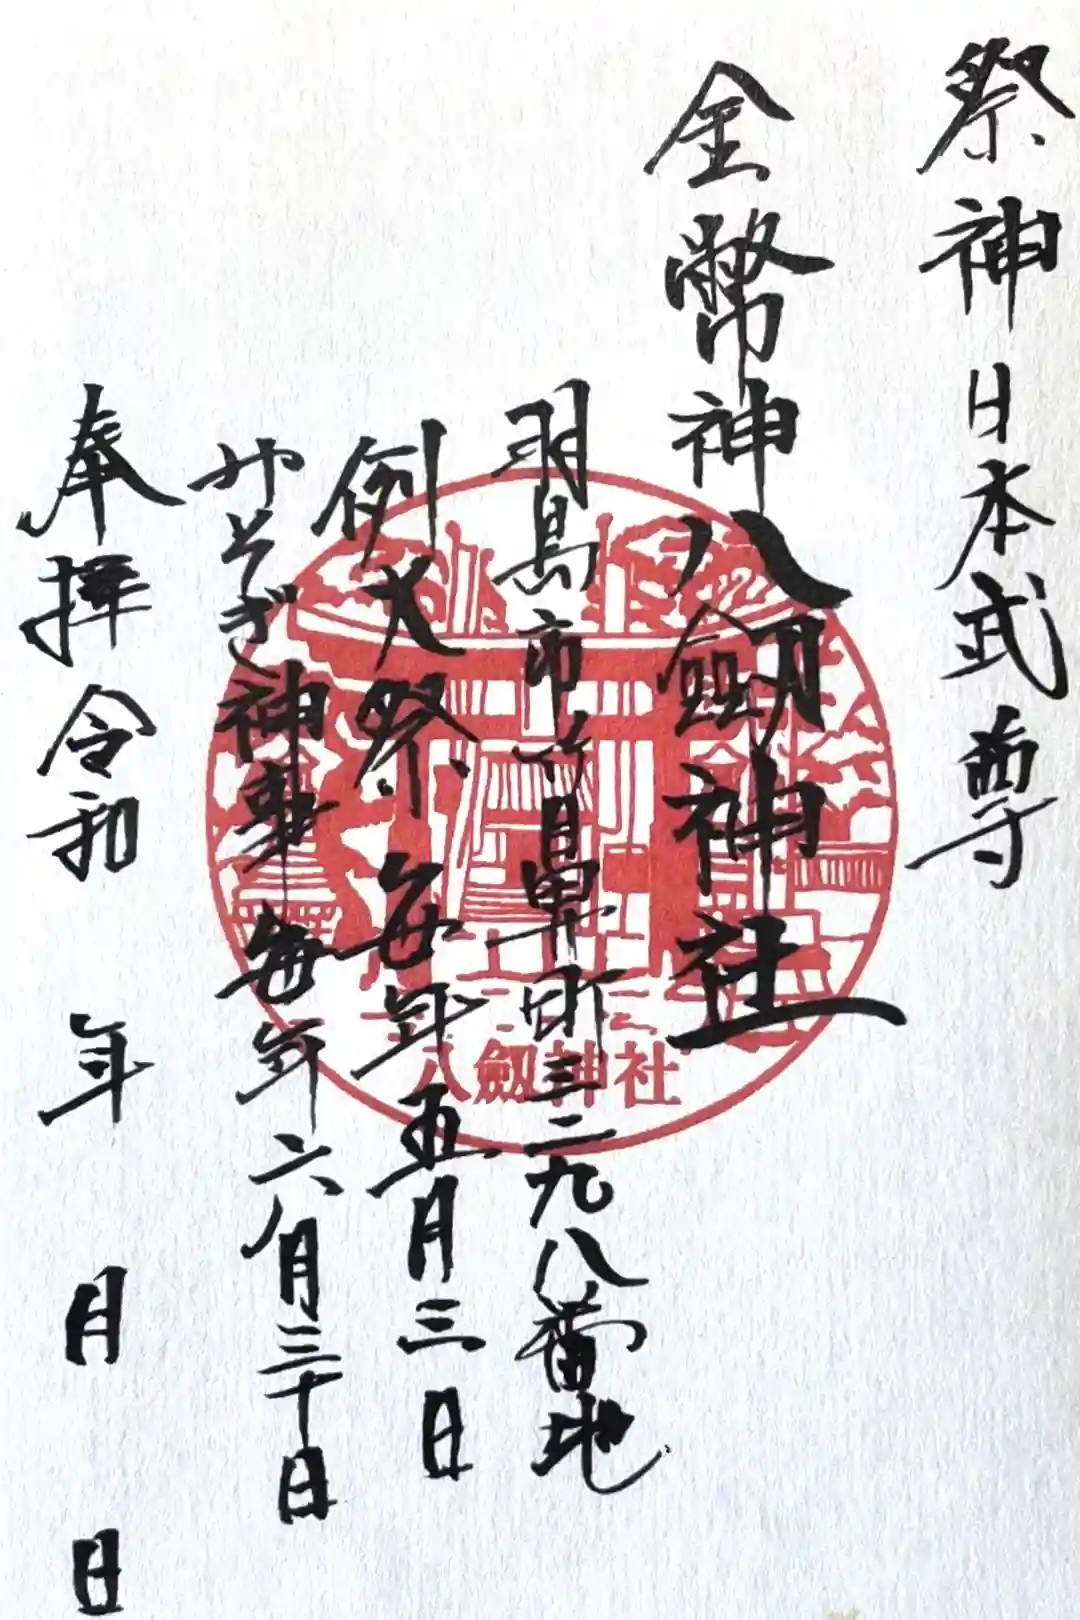 祭神日本武尊
金幣神八劔神社
羽島市竹鼻町三二九八番地
例大祭毎年五月三日
みそぎ神事毎年六月三十日
奉拝令和 年 月 日
八劔神社